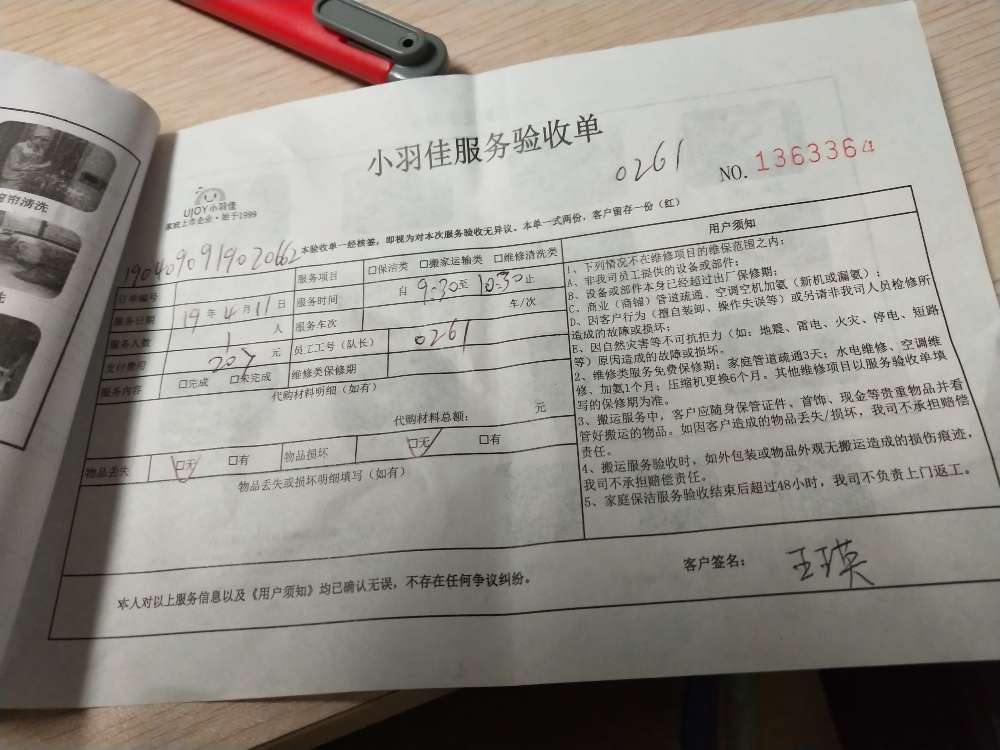 小羽佳服务验收单
0261
NO. 1363364
UJOY小羽佳
家政上市企业·始于1999
本验收单一经核签,即视为对本次服务验收无异议。本单一式两份,客户留存一份(红)
订单编号 1904090919020662 服务项目 □保洁类 □搬家运输类 □维修清洗类
服务日期 19 年 4 月 11 日 服务时间 自 9:30 至 10:30 止
服务人数 1 人 服务车次 车/次
支付费用 元 员工工号(队长) 0261
服务内容 □完成 □未完成 维修类保修期
代购材料明细(如有)
代购材料总额: 元
物品丢失 □无 □有 物品损坏 □无 □有
物品丢失或损坏明细填写(如有)
用户须知
1、下列情况不在维修项目的维保范围之内:
A、非我司员工提供的设备或部件;
B、设备或部件本身已经超过出厂保修期;
C、商业(商铺)管道疏通、空调空机加氨(新机或漏氨);
D、因客户行为(擅自装卸、操作失误等)或另请非我司人员检修所
造成的故障或损坏;
E、因自然灾害等不可抗拒力(如:地震、雷电、火灾、停电、短路
等)原因造成的故障或损坏。
2、维修类服务免费保修期:家庭管道疏通3天;水电维修、空调维
修、加氨1个月;压缩机更换6个月。其他维修项目以服务验收单填
写的保修期为准。
3、搬运服务中,客户应随身保管证件、首饰、现金等贵重物品并看
管好搬运的物品。如因客户造成的物品丢失/损坏,我司不承担赔偿
责任。
4、搬运服务验收时,如外包装或物品外观无搬运造成的损伤痕迹,
我司不承担赔偿责任。
5、家庭保洁服务验收结束后超过48小时,我司不负责上门返工。
本人对以上服务信息以及《用户须知》均已确认无误,不存在任何争议纠纷。
客户签名: 王瑛
帘清洗
洗